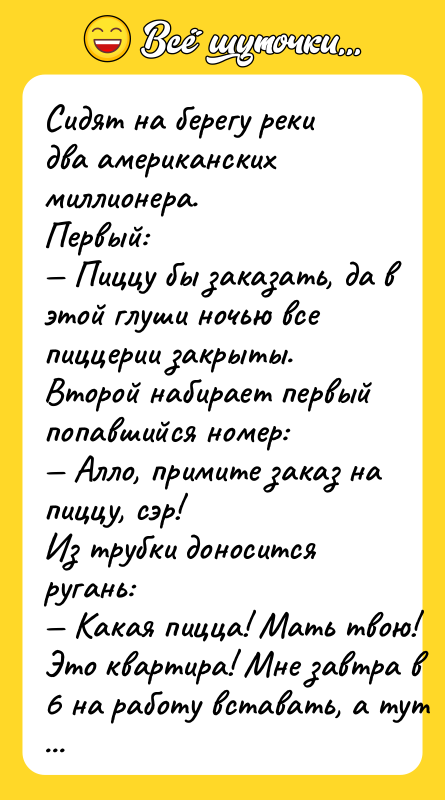 Всё шуточки...
Сидят на берегу реки
два американских
миллионера.
Первый:
— Пиццу бы заказать, да в
этой глуши ночью все
пиццерии закрыты.
Второй набирает первый
попавшийся номер:
— Алло, примите заказ на
пиццу, сэр!
Из трубки доносится
ругань:
— Какая пицца! Мать твою!
Это квартира! Мне завтра в
6 на работу вставать, а тут
...